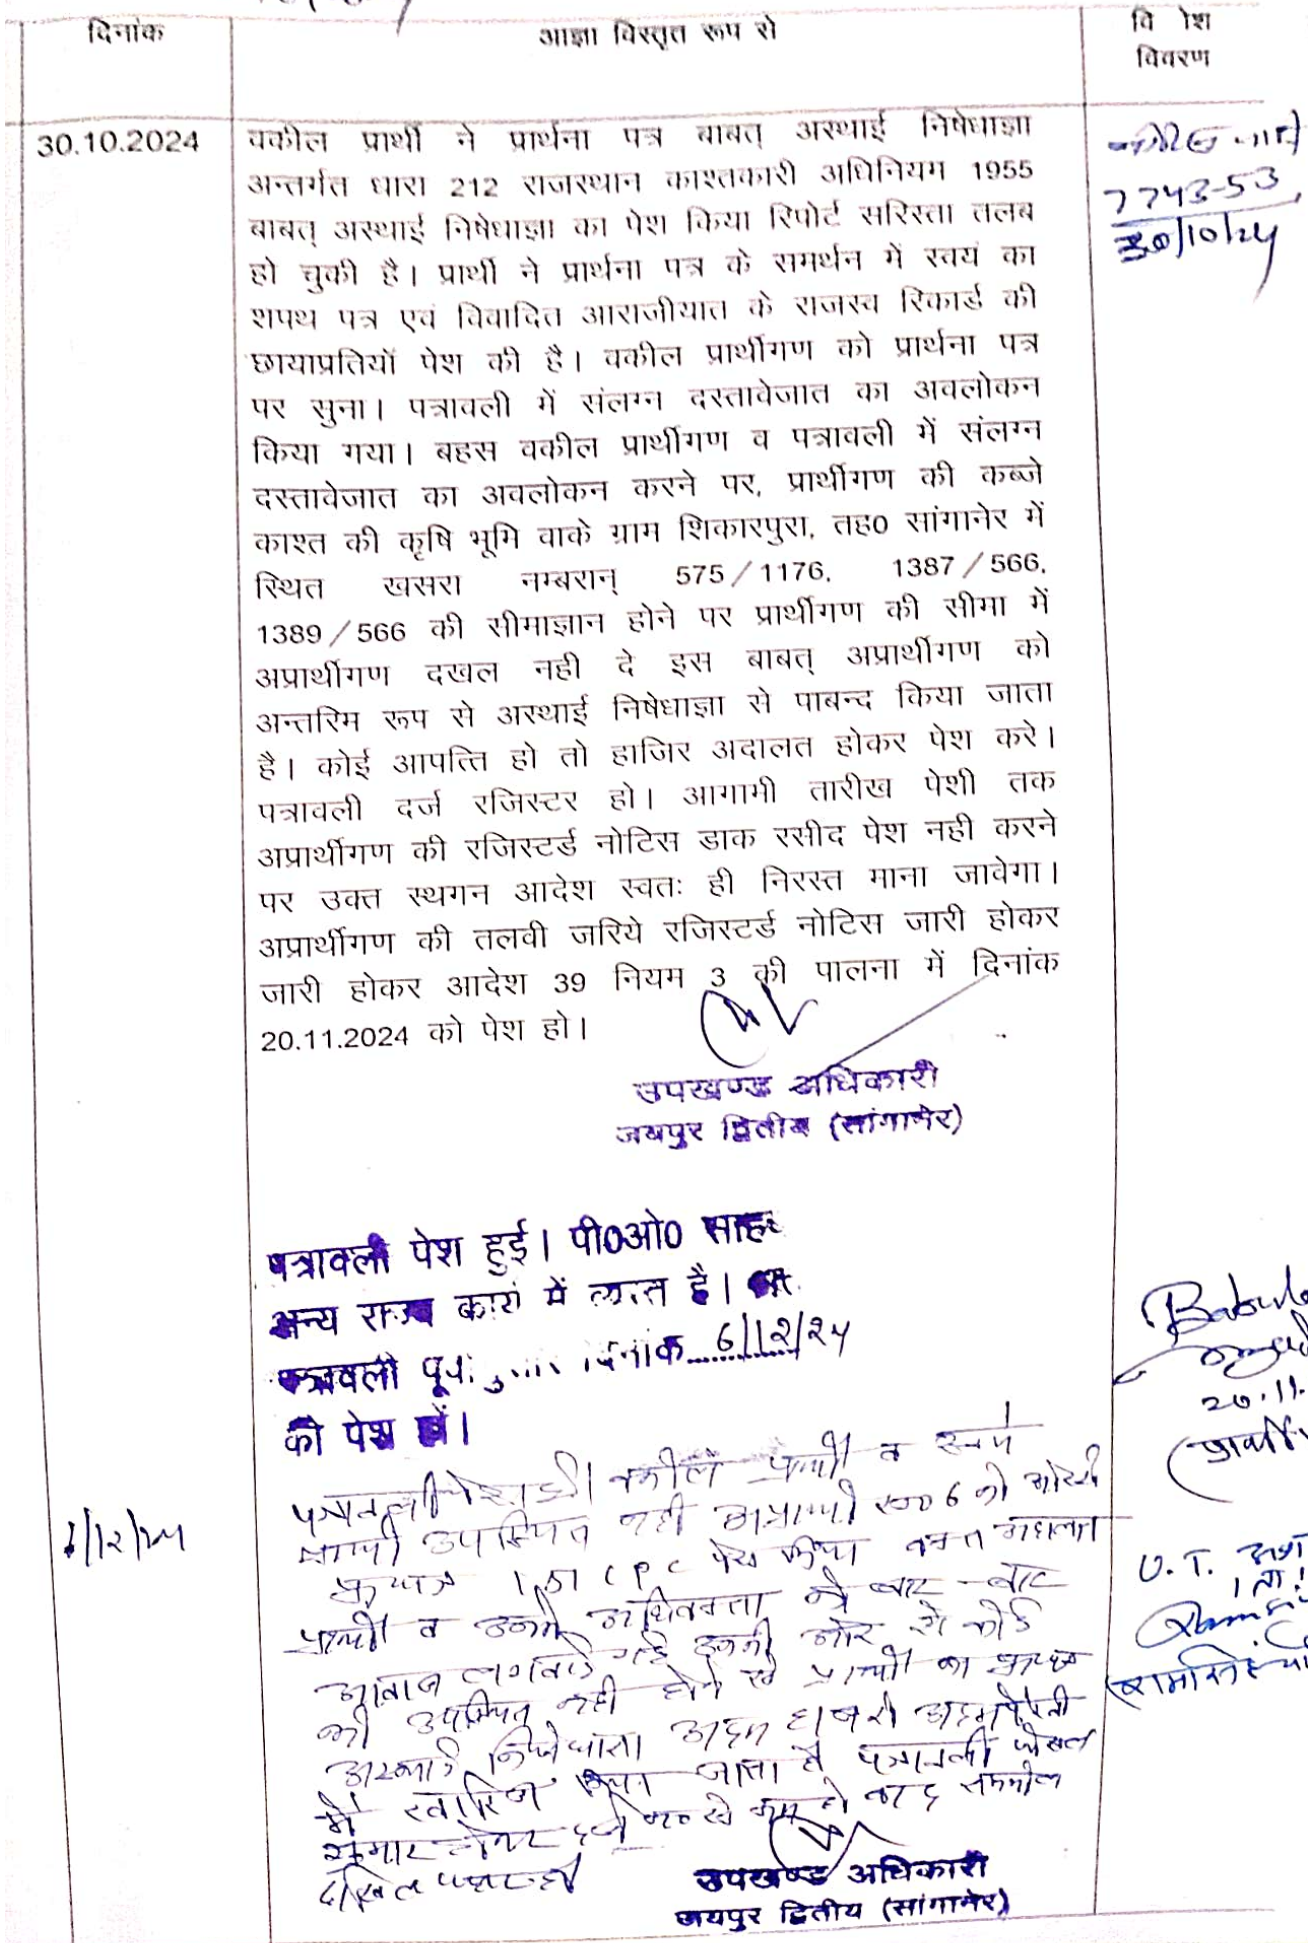 दिनांक
आज्ञा विस्तृत रूप से
वि शेश
विवरण
30.10.2024
वकील प्रार्थी ने प्रार्थना पत्र बाबत् अस्थाई निषेधाज्ञा
अन्तर्गत धारा 212 राजस्थान काश्तकारी अधिनियम 1955
बाबत् अस्थाई निषेधाज्ञा का पेश किया रिपोर्ट सरिस्ता तलब
हो चुकी है। प्रार्थी ने प्रार्थना पत्र के समर्थन में स्वयं का
शपथ पत्र एवं विवादित आराजीयात के राजस्व रिकार्ड की
छायाप्रतियॉ पेश की है। वकील प्रार्थीगण को प्रार्थना पत्र
पर सुना। पत्रावली में संलग्न दस्तावेजात का अवलोकन
किया गया। बहस वकील प्रार्थीगण व पत्रावली में संलग्न
दस्तावेजात का अवलोकन करने पर, प्रार्थीगण की कब्जे
काश्त की कृषि भूमि वाके ग्राम शिकारपुरा, तह0 सांगानेर में
स्थित खसरा नम्बरान् 575/1176, 1387/566,
1389/566 की सीमाज्ञान होने पर प्रार्थीगण की सीमा में
अप्रार्थीगण दखल नही दे इस बाबत् अप्रार्थीगण को
अन्तरिम रूप से अस्थाई निषेधाज्ञा से पाबन्द किया जाता
है। कोई आपत्ति हो तो हाजिर अदालत होकर पेश करे।
पत्रावली दर्ज रजिस्टर हो। आगामी तारीख पेशी तक
अप्रार्थीगण की रजिस्टर्ड नोटिस डाक रसीद पेश नही करने
पर उक्त स्थगन आदेश स्वतः ही निरस्त माना जावेगा।
अप्रार्थीगण की तलवी जरिये रजिस्टर्ड नोटिस जारी होकर
जारी होकर आदेश 39 नियम 3 की पालना में दिनांक
20.11.2024 को पेश हो।
7743-53
30/10/24
उपखण्ड अधिकारी
जयपुर द्वितीय (सांगानेर)
पत्रावली पेश हुई। पी0ओ0 साहब
अन्य राज्य कार्य में व्यस्त है। अतः
पत्रावली पूर्व दिनांक 6/12/24
को पेश हो।
20.11.
पत्रावली पेश हुई। वकील प्रार्थी व स्वयं
प्रार्थी उपस्थित नही अप्रार्थी सं0 6 की ओर से
151 CPC पेश किया वक्त अदालत
प्रार्थी व उनके अधिवक्ता को बार-बार
आवाज लगवाई गई इनकी ओर से कोई
भी उपस्थित नही होने से प्रार्थी का प्रा0पत्र
अस्थाई निषेधाज्ञा अदम हाजरी अदमपैरवी
में खारिज किया जाता है पत्रावली फैसल
शुमार होकर नं0 से कम हो बाद तकमील
दाखिल दफ्तर हो
U. T.
उपखण्ड अधिकारी
जयपुर द्वितीय (सांगानेर)